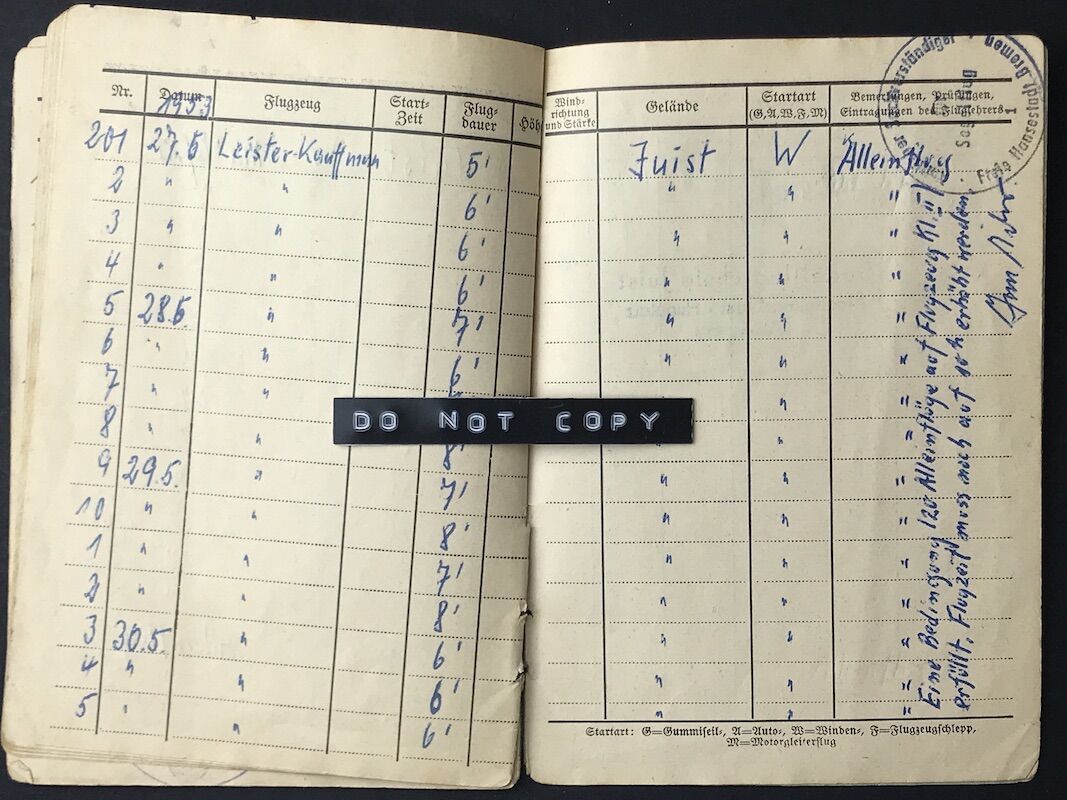 Nr. Datum Flugzeug Start-Zeit Flug-dauer Höh
1953
201 27.5 Leister-Kauffman 5'
2 " " 6'
3 " " 6'
4 " " 6'
5 28.5. " 7'
6 " " 6'
7 " "
8 " " 8'
9 29.5. " 7'
10 " " 8'
1 " " 7'
2 " " 8'
3 30.5. " 6'
4 " " 6'
5 " " 6'
DO NOT COPY
Wind-richtung und Stärke Gelände Startart (G, A, W, F, M) Bemerkungen, Prüfungen, Eintragungen des Fluglehrers
Juist W Alleinflug
" " "
" " "
" " "
" " "
" " "
" " "
" "
" " "
" " "
" " "
" " "
" " "
" " "
" " "
Eine Bedingung (20 Alleinflüge auf Flugzeug Kl. II)
erfüllt, Flugzeit muss noch auf 10h erhöht werden.
Freie Hansestadt Bremen
Startart: G=Gummiseil-, A=Auto-, W=Winden-, F=Flugzeugschlepp,
M=Motorgleiterflug